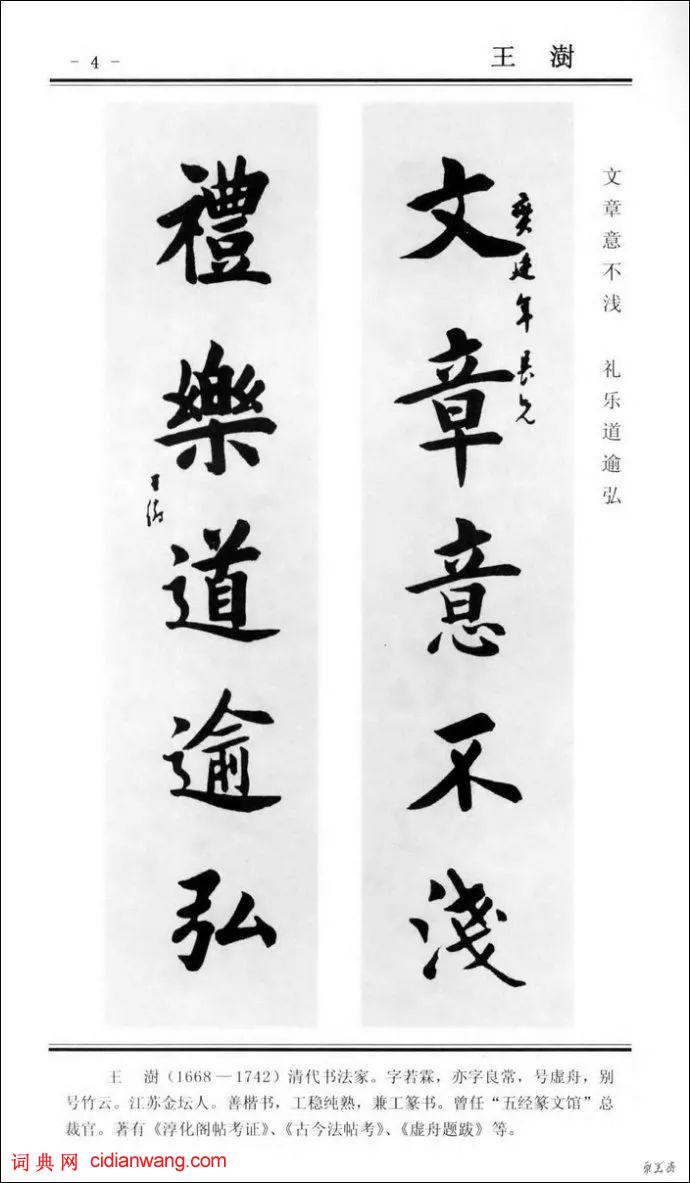 - 4 -
王 澍
文章意不浅 礼乐道逾弘
文章意不淺
年長兄
禮樂道逾弘
王澍
王 澍(1668—1742)清代书法家。字若霖,亦字良常,号虚舟,别
号竹云。江苏金坛人。善楷书,工稳纯熟,兼工篆书。曾任“五经篆文馆”总
裁官。著有《淳化阁帖考证》、《古今法帖考》、《虚舟题跋》等。
词典网 cidianwang.com